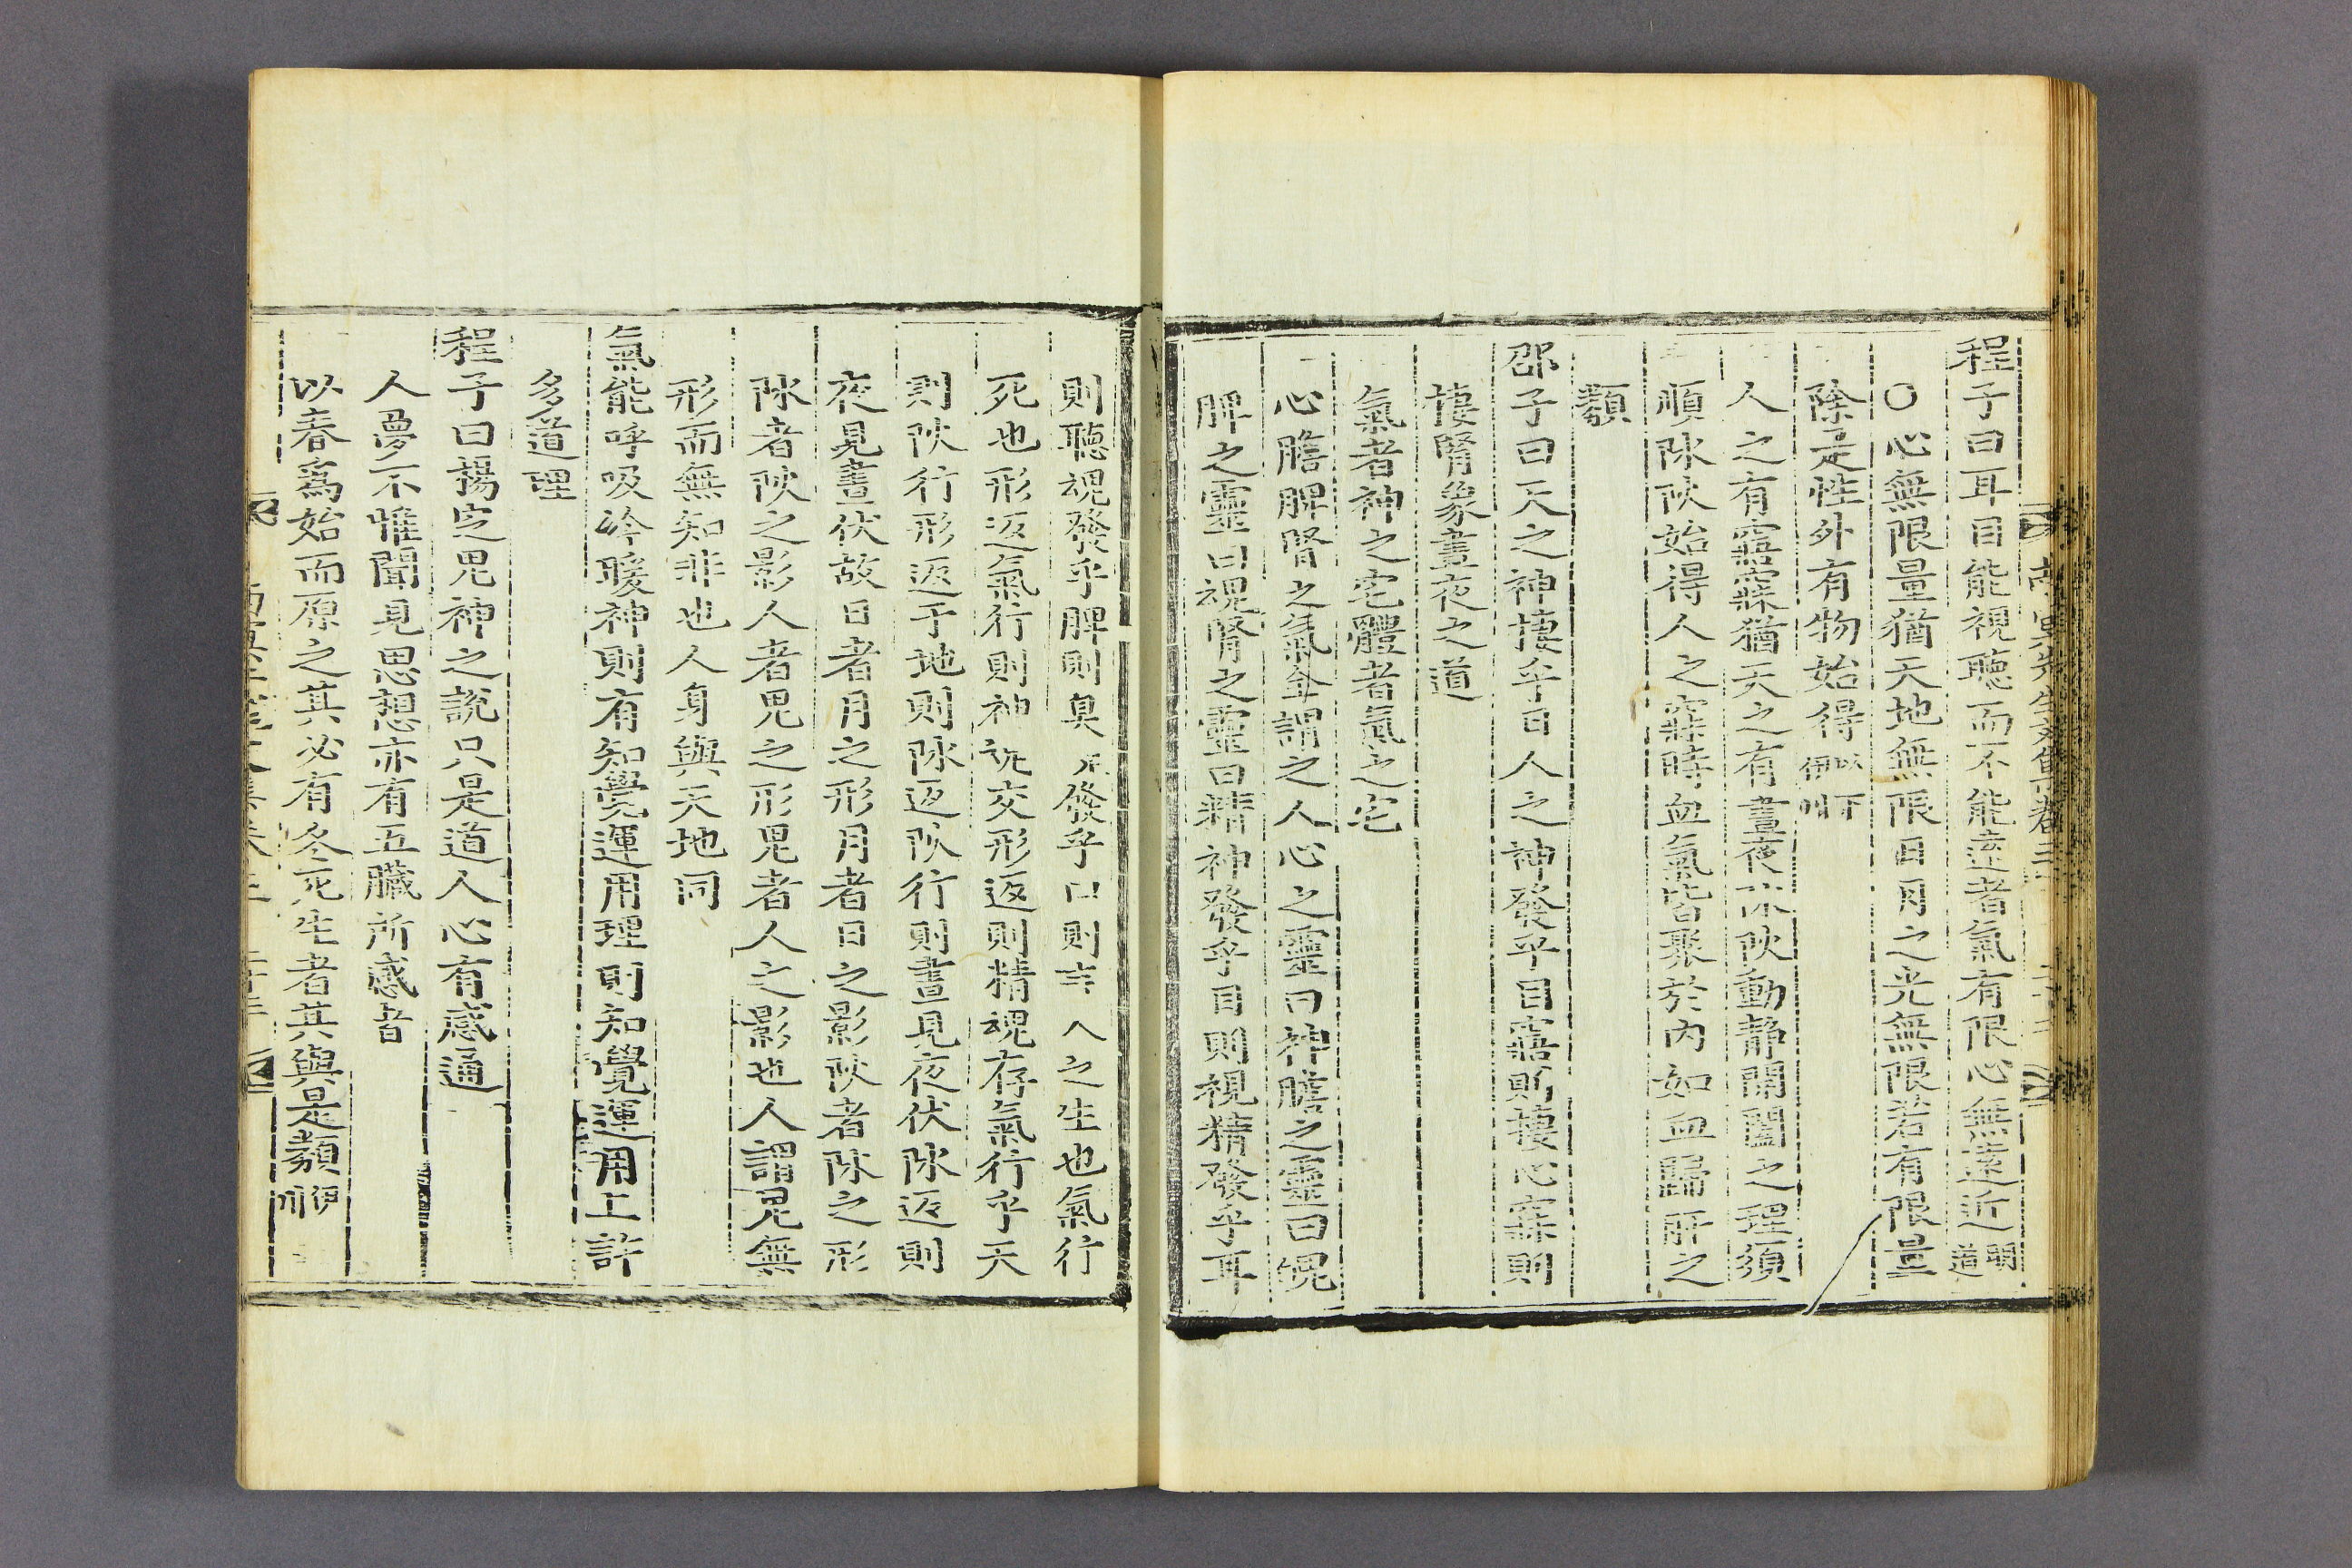 程子曰耳目能視聽而不能遠者氣有限心無遠近明道
〇心無限量猶天地無限日月之光無限若有限量
除是性外有物始得以下伊川
人之有寤寐猶天之有晝夜阴阳動靜開闔之理須
順阴阳始得人之寐時血氣皆聚於內如血歸肝之
類
邵子曰天之神棲乎日人之神發乎目寤則棲心寐則
棲腎象晝夜之道
氣者神之宅體者氣之宅
心膽脾腎之氣全謂之人心之靈曰神膽之靈曰魄
脾之靈曰魂腎之靈曰精神發乎目則視精發乎耳
則聽魂發乎脾則臭 發乎口則言人之生也氣行
死也形返氣行則神 交形返則精魂存氣行乎天
則阳行形返于地則阴返阳行則晝見夜伏阴返則
夜見晝伏故日者月之形月者日之影阳者阴之形
阴者阳之影人者鬼之形鬼者人之影也人謂鬼無
形而無知非也人身與天地同
氣能呼吸冷暖神則有知覺運用理則知覺運用上許
多道理
程子曰揚定鬼神之說只是道人心有感通
人夢不惟聞見思想亦有五臟所感者
以春爲始而原之其必有冬死生者其與是類伊川